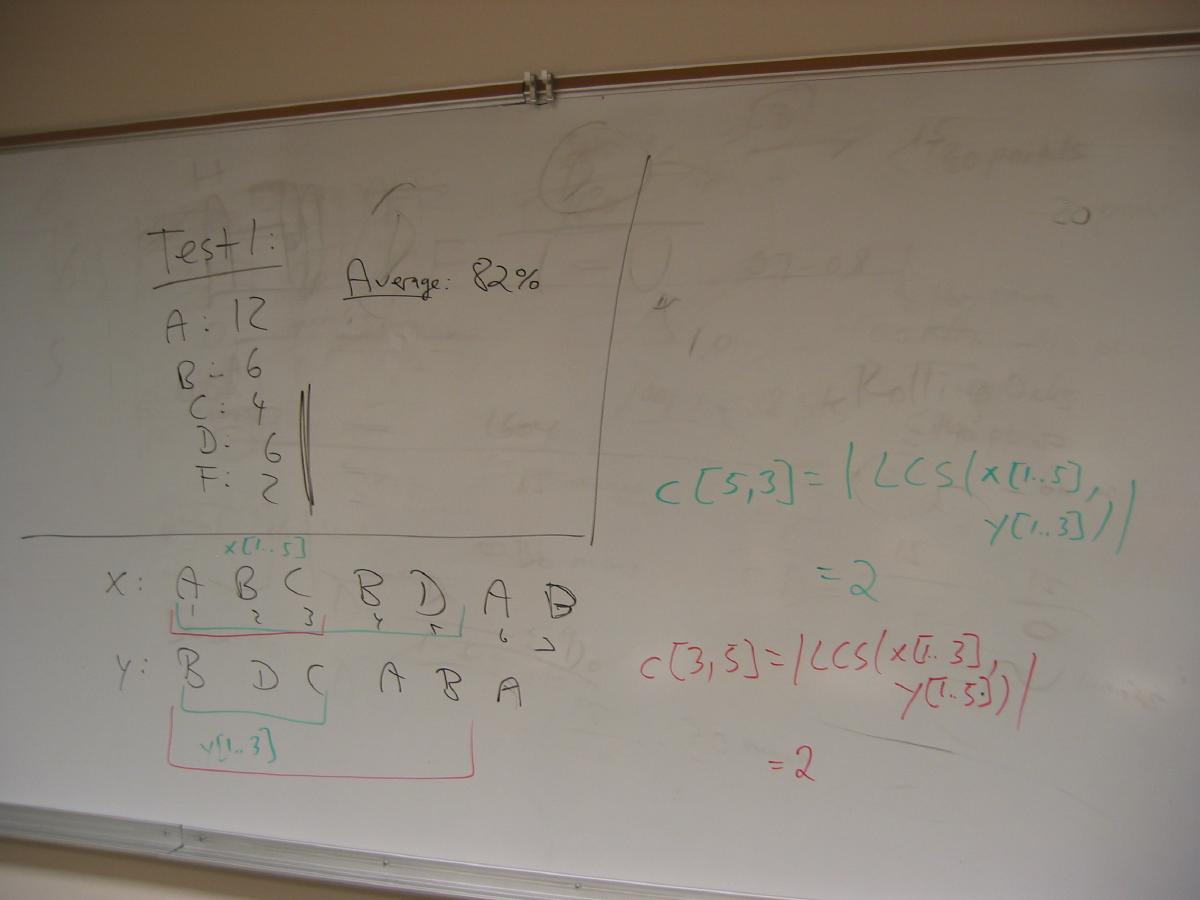 Test 1:
Average: 82%
A: 12
B: 6
C: 4
D: 6
F: 2
x[1..5]
X: A B C B D A B
1 2 3 4 5 6 7
Y: B D C A B A
y[1..3]
c[5,3]=|LCS(x[1..5],
y[1..3])|
=2
c[3,5]=|LCS(x[1..3],
y[1..5])|
=2
20 points
20
Rolling